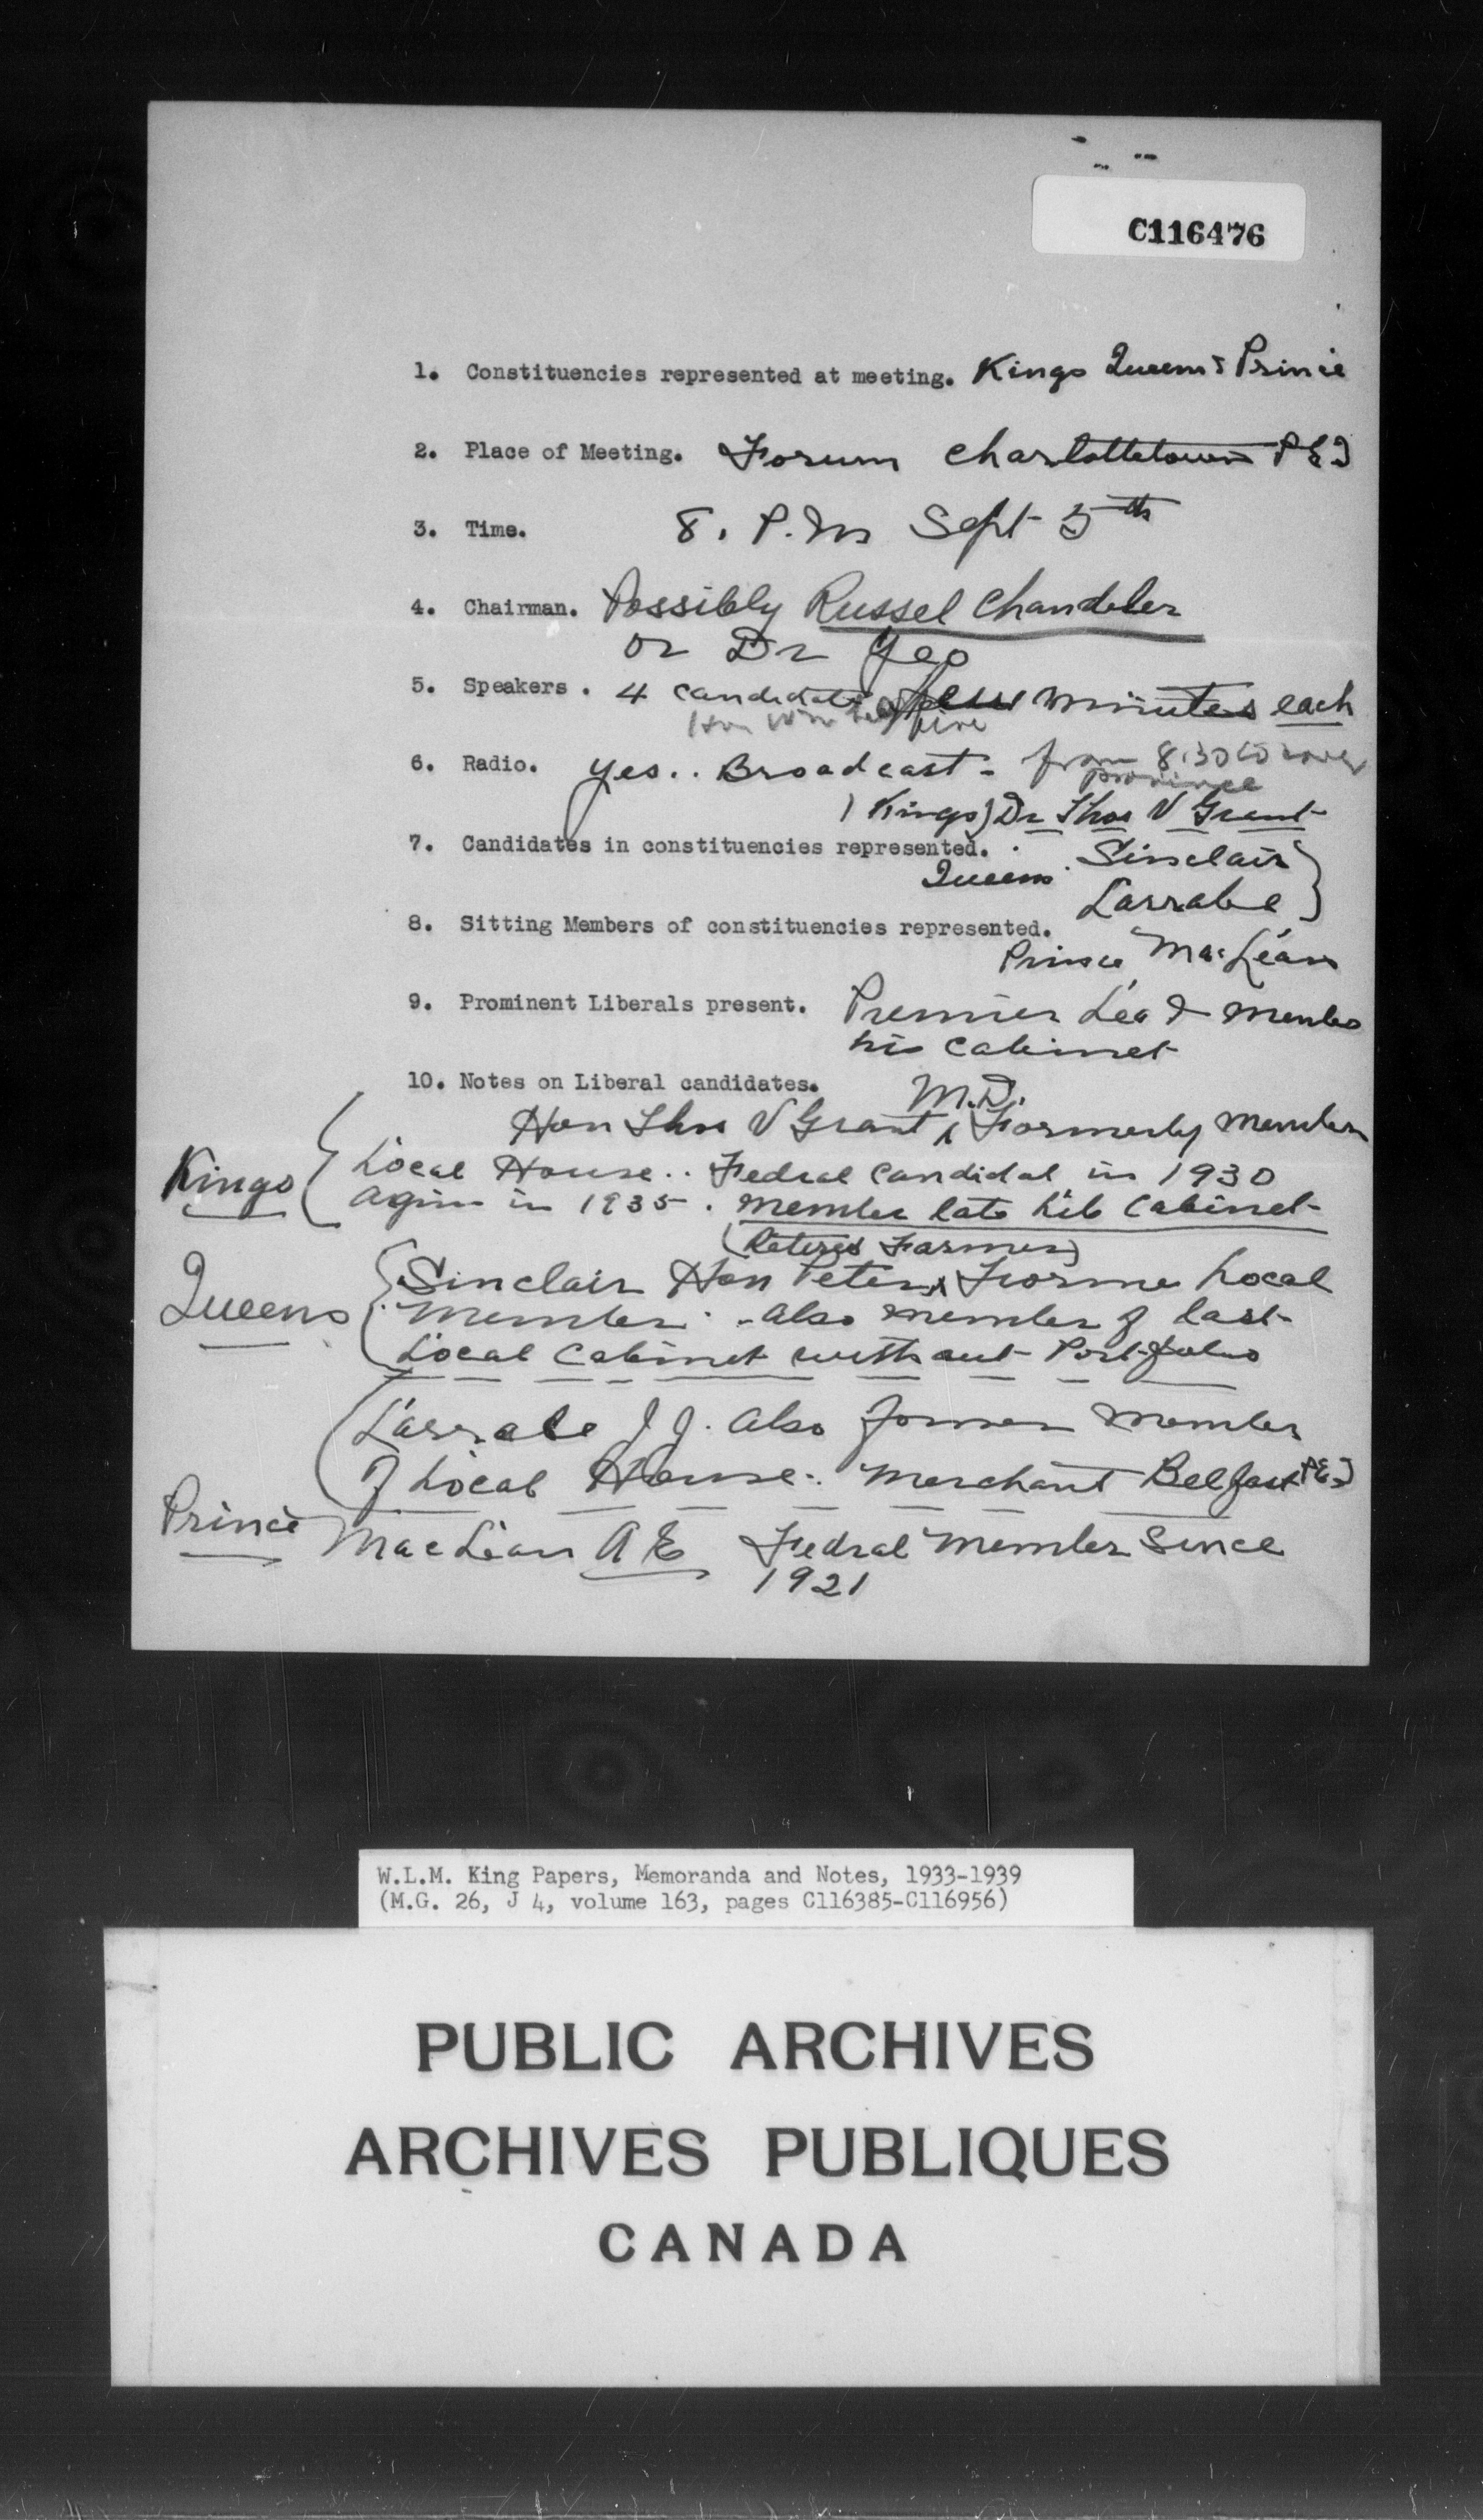 C116476
1. Constituencies represented at meeting. Kings Queens & Prince
2. Place of Meeting. Forum Charlottetown P E I
3. Time. 8. P.M Sept 5th
4. Chairman. Possibly Russel Chandeler
or Dr Yeo
5. Speakers. 4 candidates few minutes each
Hon
6. Radio. Yes.. Broadcast - from 8.30 to
province
Kings) Dr Thos V Grant
7. Candidates in constituencies represented.
Queens. Sinclair
Larrabe
8. Sitting Members of constituencies represented.
Prince MacLean
9. Prominent Liberals present. Premier Lea & Members
his Cabinet
10. Notes on Liberal candidates.
M.D.
Hon Thos V Grant, Formerly Member
Kings Local House.. Fedral Candidat in 1930
again in 1935. Member late Lib Cabinet
(Retired Farmer)
Queens Sinclair Hon Peter Forme Local
Member. - also member of last
Local Cabinet without Portfolio
Larrabe J J. also former Member
of Local House. Merchant Belfast P E I
Prince MacLean A E Fedral Member Since
1921
W.L.M. King Papers, Memoranda and Notes, 1933-1939
(M.G. 26, J 4, volume 163, pages C116385-C116956)
PUBLIC ARCHIVES
ARCHIVES PUBLIQUES
CANADA